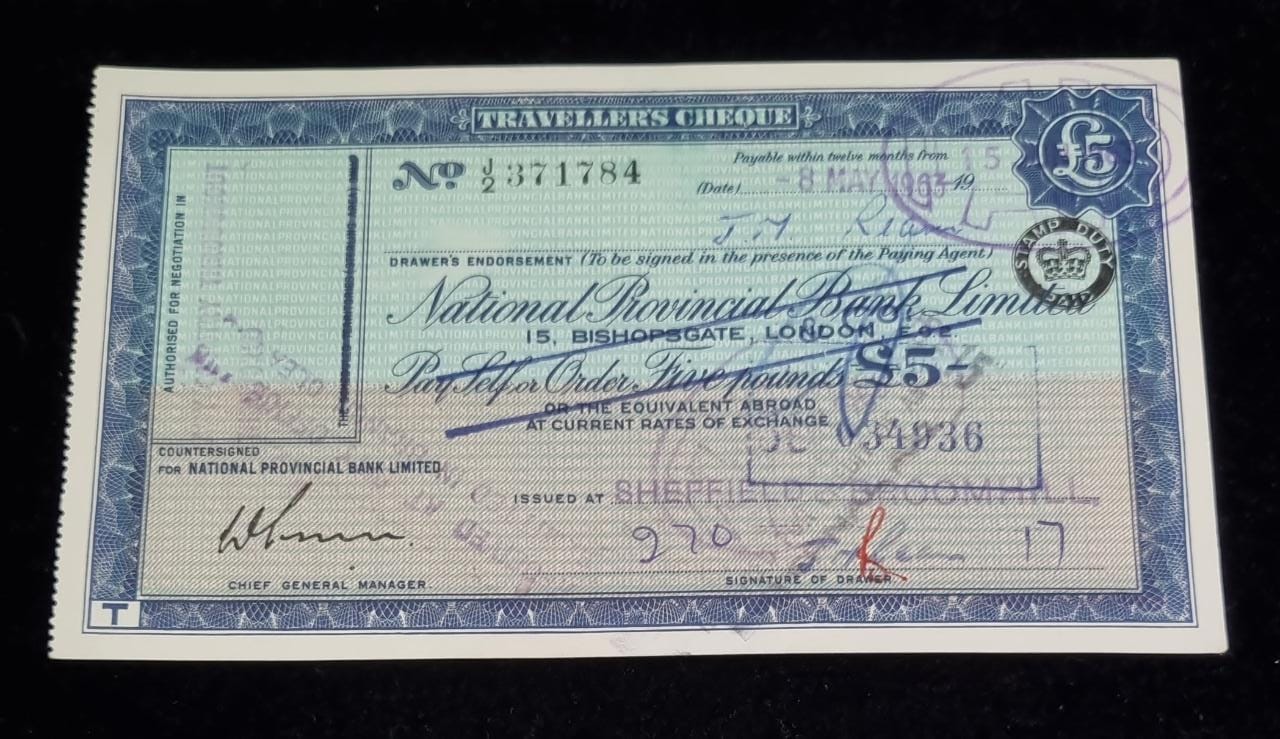 TRAVELLER'S CHEQUE
£5
AUTHORISED FOR NEGOTIATION IN
No J/2 371784
Payable within twelve months from
(Date) - 8 MAY 1963 19
15
STAMP DUTY PAID
J.
DRAWER'S ENDORSEMENT (To be signed in the presence of the Paying Agent)
National Provincial Bank Limited
15, BISHOPSGATE, LONDON, E.C.2.
Pay Self or Order Five pounds £5-
OR THE EQUIVALENT ABROAD
AT CURRENT RATES OF EXCHANGE
034936
COUNTERSIGNED
FOR NATIONAL PROVINCIAL BANK LIMITED
ISSUED AT SHEFFIELD BROOMHILL
970 17
CHIEF GENERAL MANAGER.
SIGNATURE OF DRAWER
T